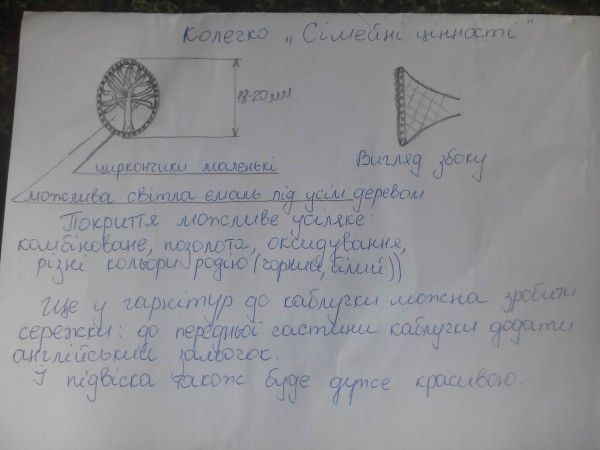 Колечко „Сімейні цінності"
18-20 мм
циркончики маленькі
Вигляд збоку
можлива світла емаль під усім деревом
Покриття можливе усіляке:
комбіноване, позолота, оксидування,
різні кольори родію (чорний, білий))
Ще у гарнітур до каблучки можна зробити
сережки: до передньої частини каблучки додати
англійський замочок.
Й підвіска також буде дуже красивою.